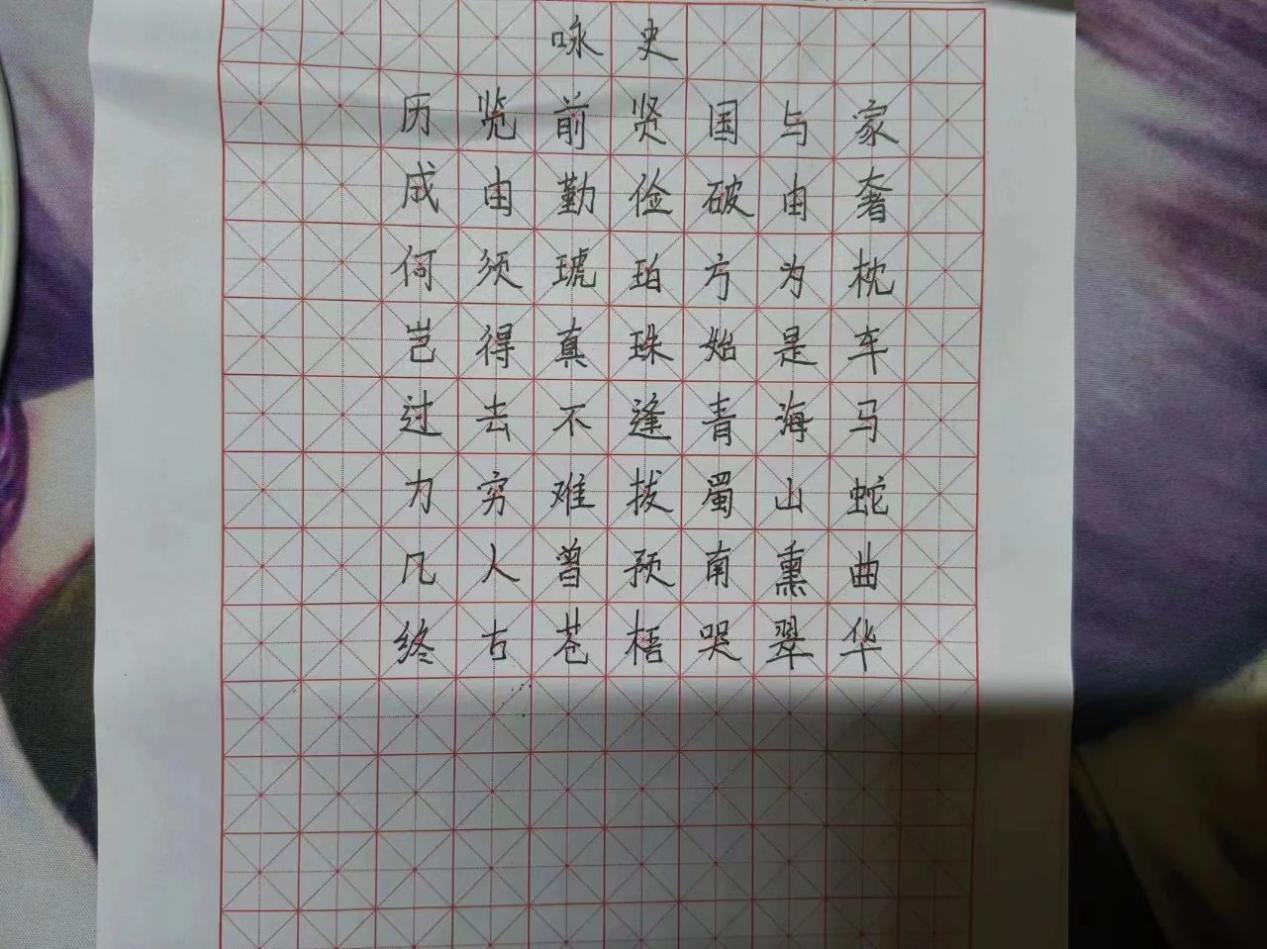 咏史
历览前贤国与家
成由勤俭破由奢
何须琥珀方为枕
岂得真珠始是车
过去不逢青海马
力穷难拔蜀山蛇
凡人曾预南熏曲
终古苍梧哭翠华